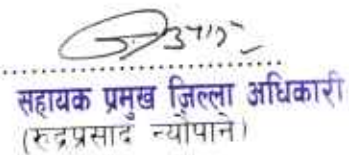 सहायक प्रमुख जिल्ला अधिकारी
(रुद्रप्रसाद न्यौपाने)